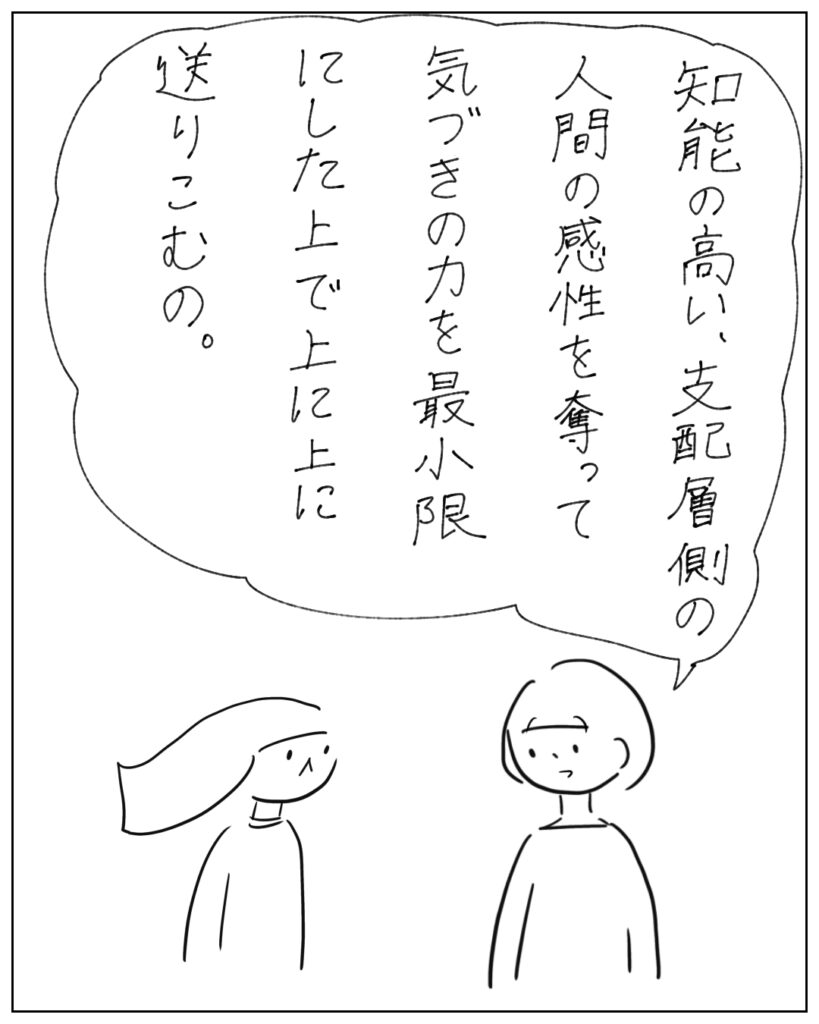 知能の高い、支配層側の
人間の感性を奪って
気づきの力を最小限
にした上で上に上に
送りこむの。